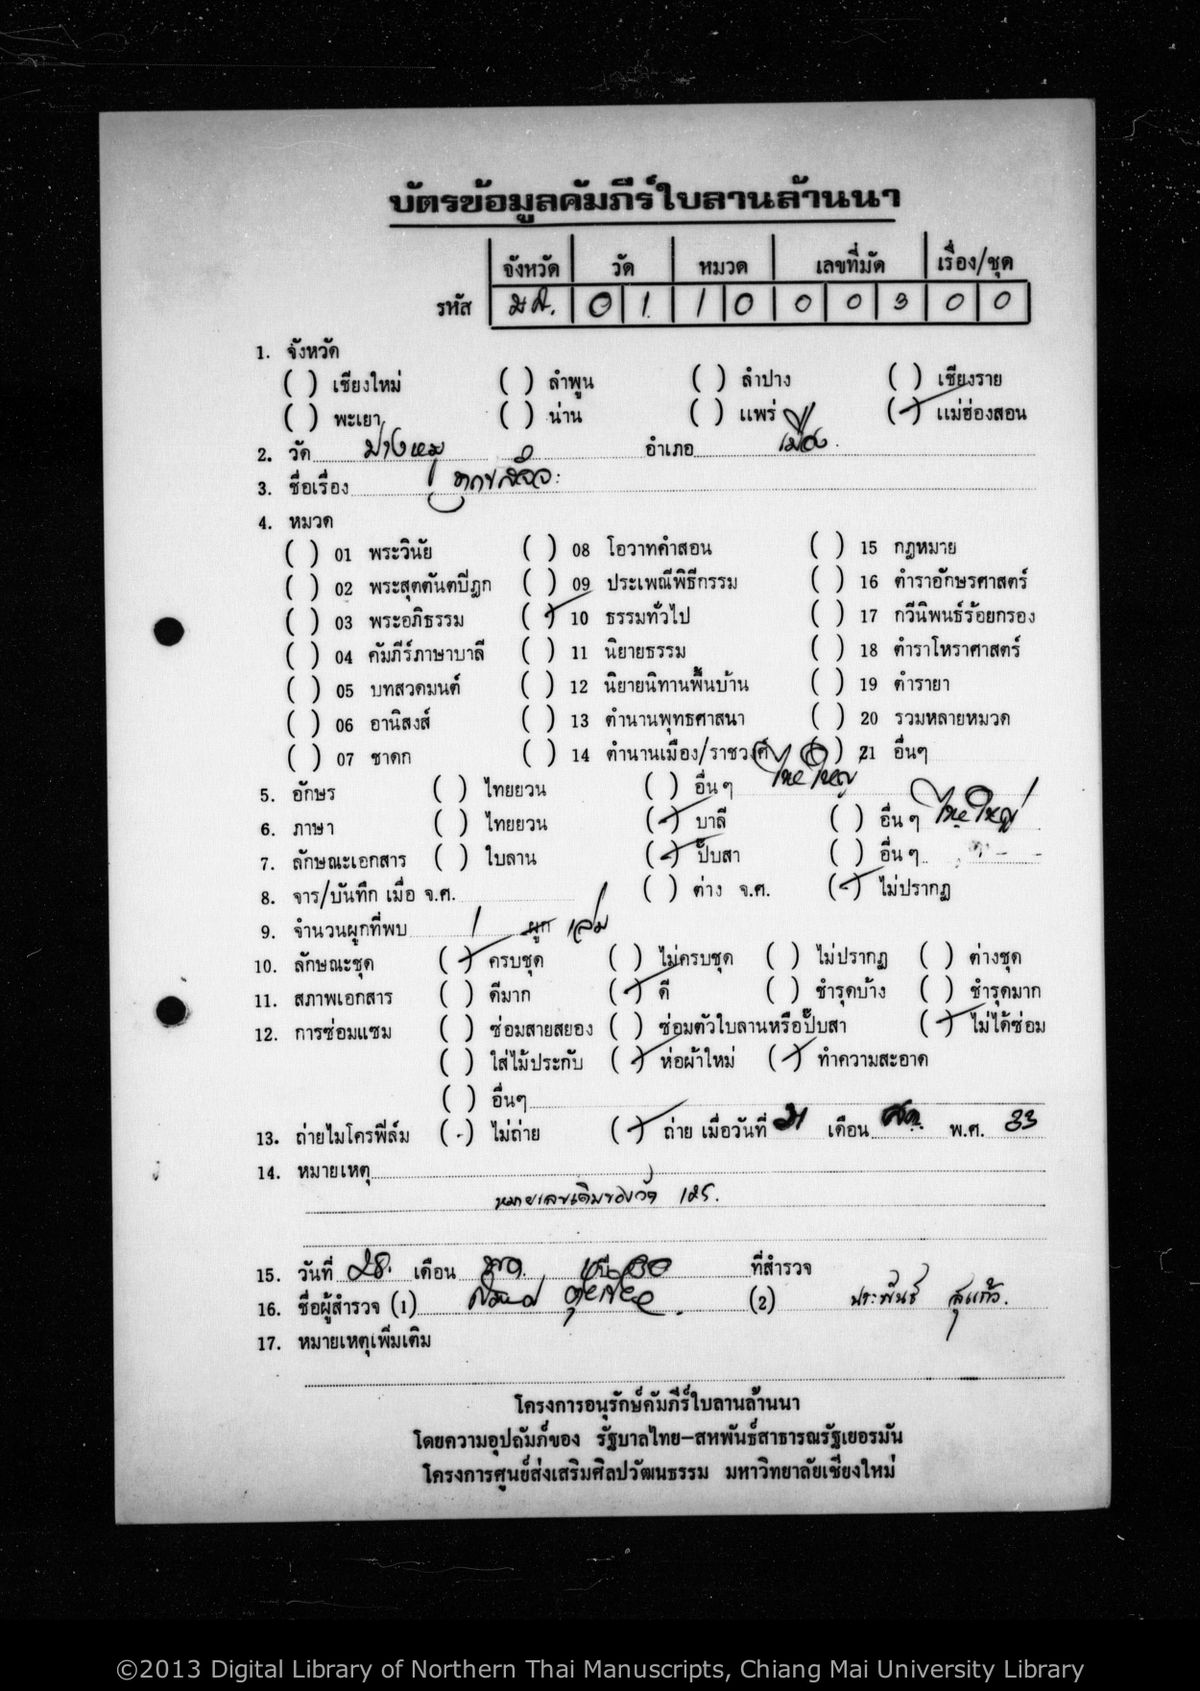 บัตรข้อมูลคัมภีร์ใบลานล้านนา
จังหวัด วัด หมวด เลขที่มัด เรื่อง/ชุด
รหัส มส. 0 1 1 0 0 0 3 0 0
1. จังหวัด
( ) เชียงใหม่ ( ) ลำพูน ( ) ลำปาง ( ) เชียงราย
( ) พะเยา ( ) น่าน ( ) แพร่ (✓) แม่ฮ่องสอน
2. วัด ปางหมู อำเภอ เมือง
3. ชื่อเรื่อง
4. หมวด
( ) 01 พระวินัย ( ) 08 โอวาทคำสอน ( ) 15 กฎหมาย
( ) 02 พระสุตตันตปิฎก ( ) 09 ประเพณีพิธีกรรม ( ) 16 ตำราอักษรศาสตร์
( ) 03 พระอภิธรรม (✓) 10 ธรรมทั่วไป ( ) 17 กวีนิพนธ์ร้อยกรอง
( ) 04 คัมภีร์ภาษาบาลี ( ) 11 นิยายธรรม ( ) 18 ตำราโหราศาสตร์
( ) 05 บทสวดมนต์ ( ) 12 นิยายนิทานพื้นบ้าน ( ) 19 ตำรายา
( ) 06 อานิสงส์ ( ) 13 ตำนานพุทธศาสนา ( ) 20 รวมหลายหมวด
( ) 07 ชาดก ( ) 14 ตำนานเมือง/ราชวงศ์ ( ) 21 อื่นๆ
5. อักษร ( ) ไทยยวน ( ) อื่น ๆ ไทยใหญ่
6. ภาษา ( ) ไทยยวน (✓) บาลี ( ) อื่น ๆ ไทยใหญ่
7. ลักษณะเอกสาร ( ) ใบลาน (✓) ปั๊บสา ( ) อื่น ๆ
8. จาร/บันทึก เมื่อ จ.ศ. ( ) ต่าง จ.ศ. (✓) ไม่ปรากฏ
9. จำนวนผูกที่พบ 1 ผูก เล่ม
10. ลักษณะชุด (✓) ครบชุด ( ) ไม่ครบชุด ( ) ไม่ปรากฏ ( ) ต่างชุด
11. สภาพเอกสาร ( ) ดีมาก (✓) ดี ( ) ชำรุดบ้าง ( ) ชำรุดมาก
12. การซ่อมแซม ( ) ซ่อมสายสยอง ( ) ซ่อมตัวใบลานหรือปั๊บสา (✓) ไม่ได้ซ่อม
( ) ใส่ไม้ประกับ (✓) ห่อผ้าใหม่ (✓) ทำความสะอาด
( ) อื่นๆ
13. ถ่ายไมโครฟิล์ม ( ) ไม่ถ่าย (✓) ถ่าย เมื่อวันที่ 21 เดือน พ.ศ. 33
14. หมายเหตุ
หมายเลขเดิมของวัด 125.
15. วันที่ 28. เดือน ปี 30 ที่สำรวจ
16. ชื่อผู้สำรวจ (1) (2) ประพันธ์ สุแก้ว.
17. หมายเหตุเพิ่มเติม
โครงการอนุรักษ์คัมภีร์ใบลานล้านนา
โดยความอุปถัมภ์ของ รัฐบาลไทย-สหพันธ์สาธารณรัฐเยอรมัน
โครงการศูนย์ส่งเสริมศิลปวัฒนธรรม มหาวิทยาลัยเชียงใหม่
©2013 Digital Library of Northern Thai Manuscripts, Chiang Mai University Library